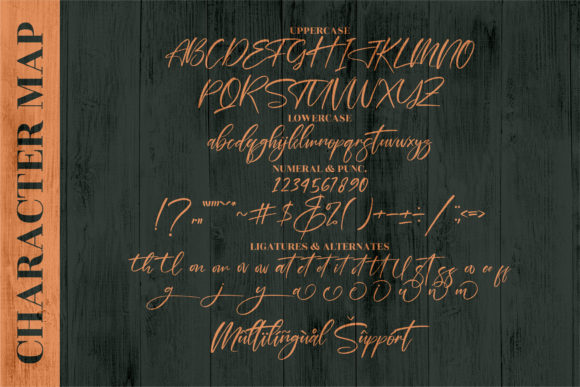 CHARACTER MAP
UPPERCASE
ABCDEFGHIJKLMNO
PQRSTUVWXYZ
LOWERCASE
abcdefghijklmnopqrstuvwxyz
NUMERAL & PUNC.
1234567890
!? "" ~ # $ & % ( ) + - ± ÷ / ; < = >
LIGATURES & ALTERNATES
th tl on om or ov at et ot it tt ll st ss oo ee ff
g j y a c e i o u n m
Multilingual Support